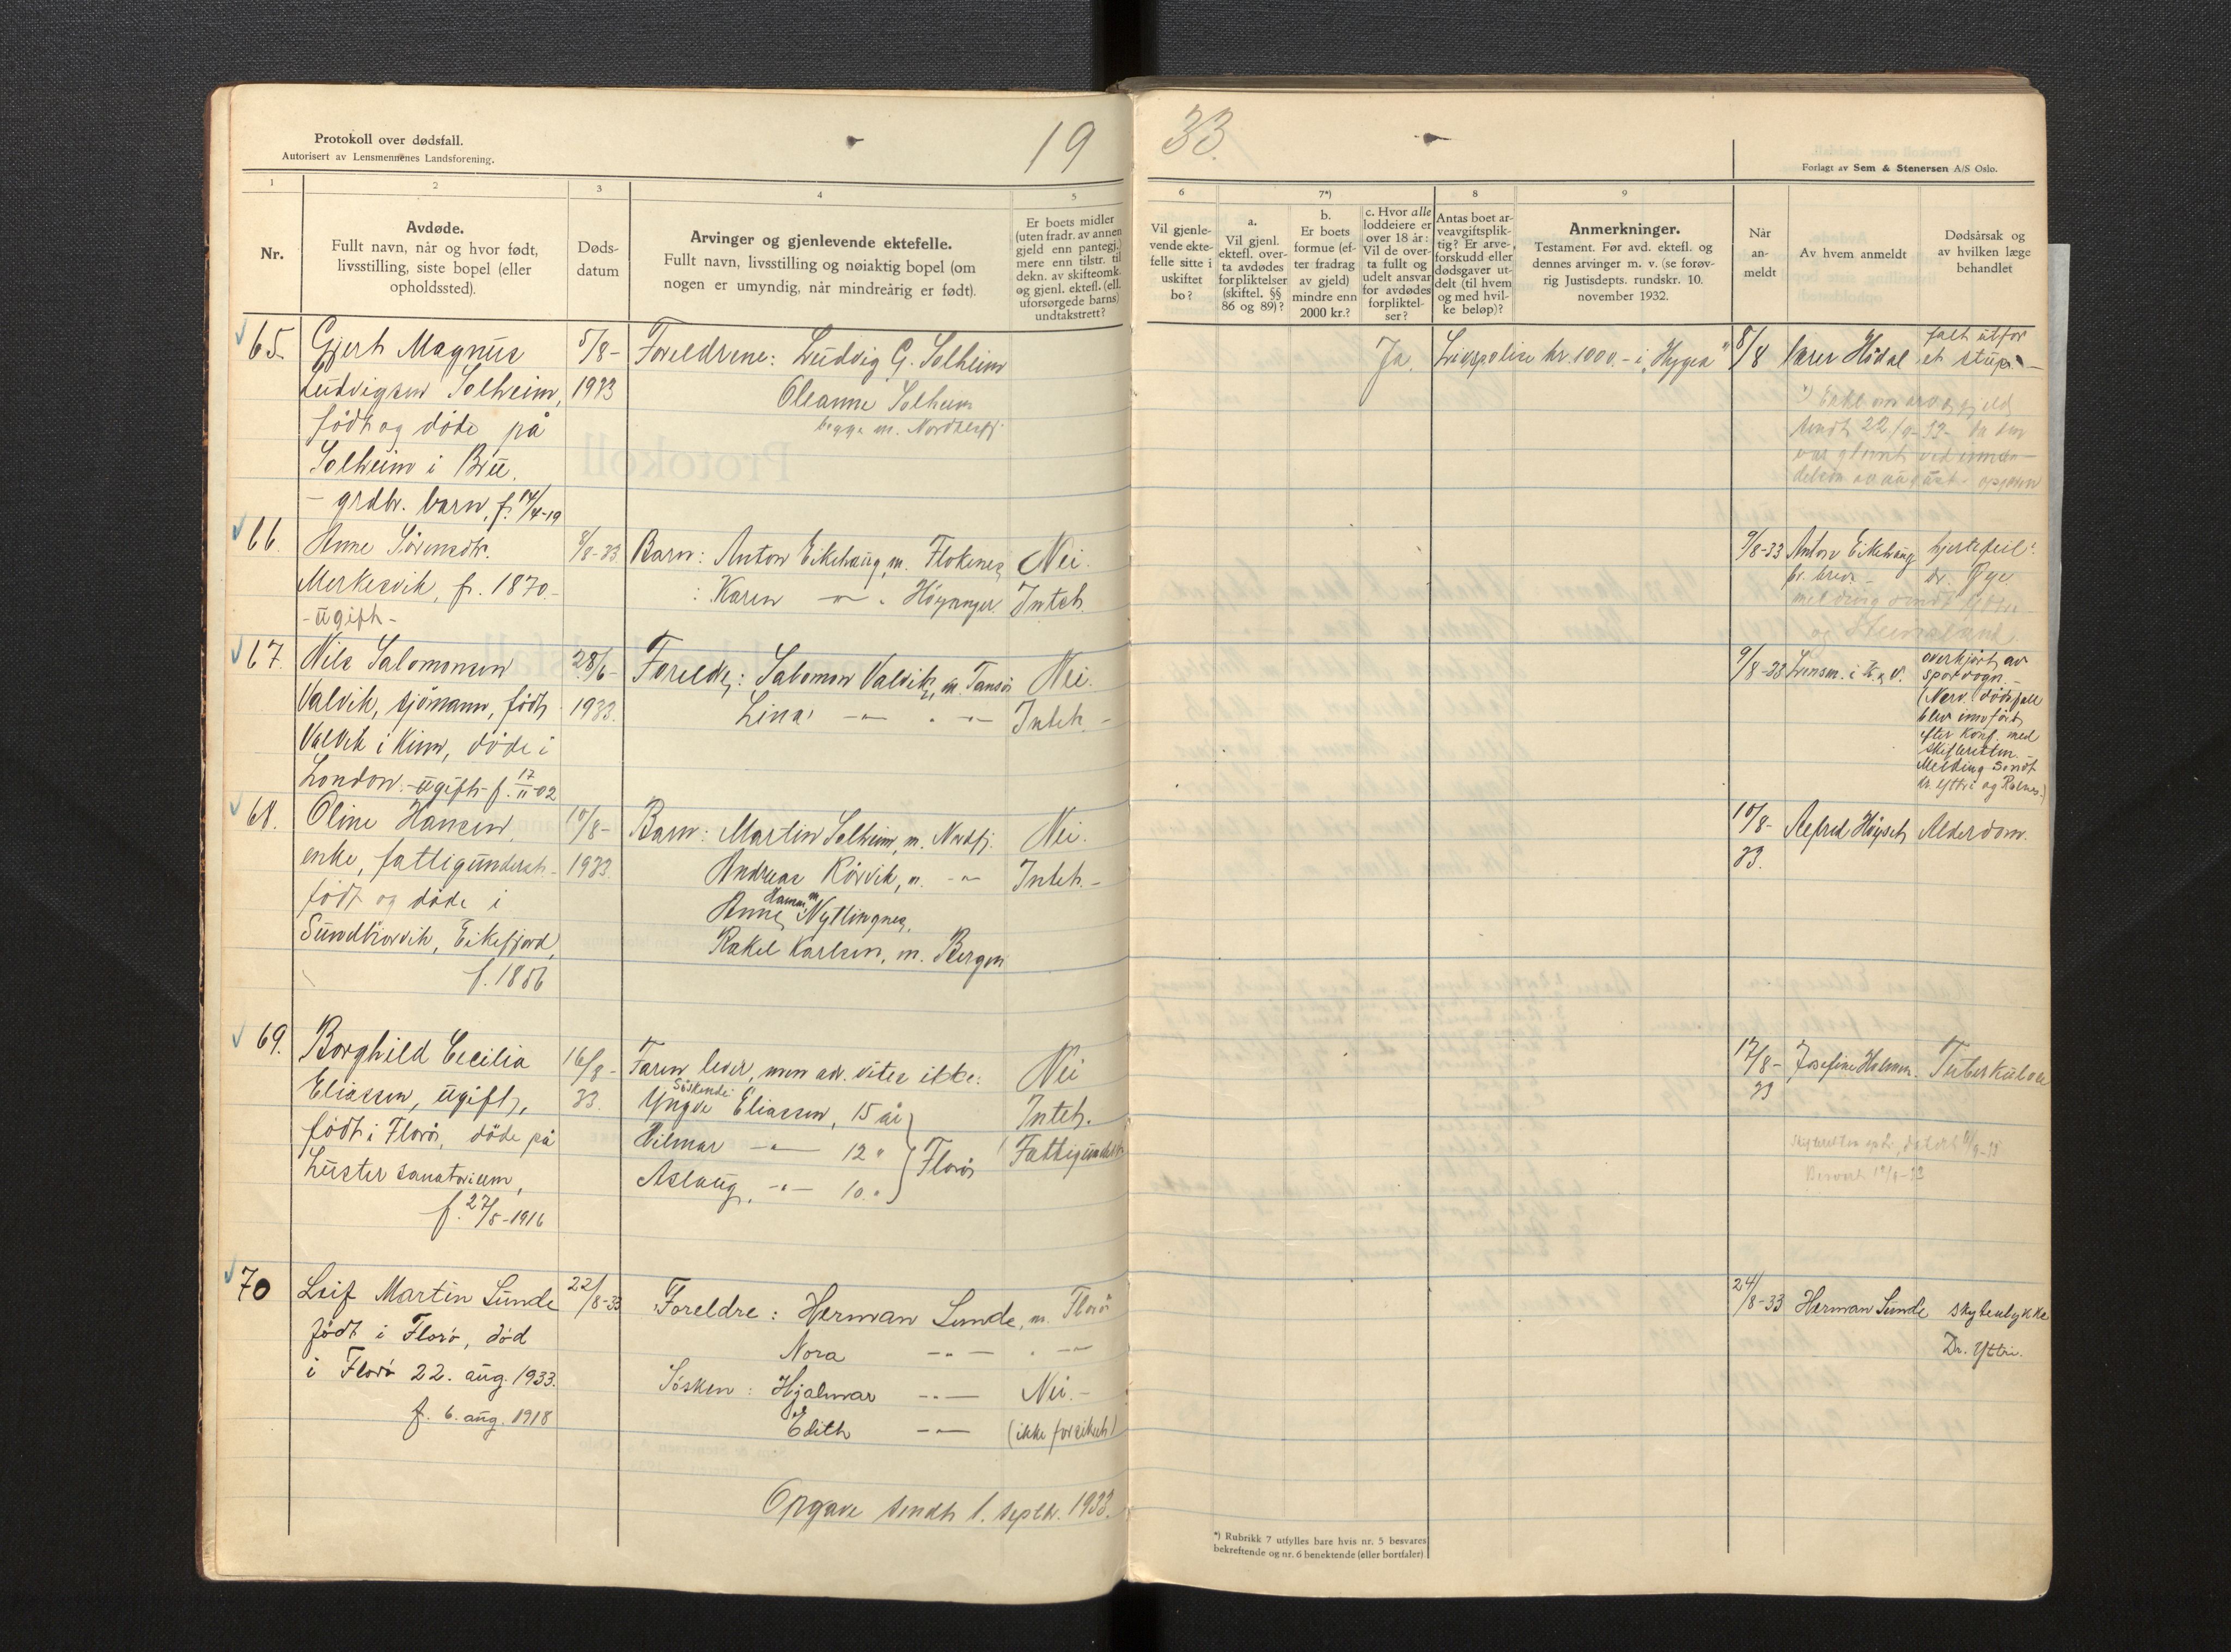 Protokoll over dødsfall.
Autorisert av Lensmennenes Landsforening.
19
33.
Forlagt av Sem & Stenersen A/S Oslo.
1
2
3
4
5
6
7*)
8
9
Nr.
Avdøde.
Fullt navn, når og hvor født,
livsstilling, siste bopel (eller
opholdssted).
Døds-
datum
Arvinger og gjenlevende ektefelle.
Fullt navn, livsstilling og nøiaktig bopel (om
nogen er umyndig, når mindreårig er født).
Er boets midler
(uten fradr. av annen
gjeld enn pantegj.)
mere enn tilstr. til
dekn. av skifteomk.
og gjenl. ektefl. (ell.
uforsørgede barns)
undtakstrett?
Vil gjenle-
vende ekte-
felle sitte i
uskiftet
bo?
a.
Vil gjenl.
ektefl. over-
ta avdødes
forpliktelser
(skiftel. §§
86 og 89)?
b.
Er boets
formue (ef-
ter fradrag
av gjeld)
mindre enn
2000 kr.?
c. Hvor alle
loddeiere er
over 18 år:
Vil de over-
ta fullt og
udelt ansvar
for avdødes
forpliktel-
ser?
Antas boet ar-
veavgiftsplik-
tig? Er arve-
forskudd eller
dødsgaver ut-
delt (til hvem
og med hvil-
ke beløp)?
Anmerkninger.
Testament. Før avd. ektefl. og
dennes arvinger m. v. (se forøv-
rig Justisdepts. rundskr. 10.
november 1932.
Når
an-
meldt
Av hvem anmeldt
Dødsårsak og
av hvilken læge
behandlet
65.
Gjert Magnus
Ludvigsen Solheim,
født og døde på
Solheim i Bru.
- grdbr. barn, f. 14/4-19
5/8-
1933
Foreldrene: Ludvig G. Solheim
Oleanne Solheim
begge m. Nordalsfj.
Ja.
Livspolise kr. 1000.- i "Hygea"
8/8
lærer Hødal
falt utfor
et stup.
66.
Anne Sörensdtr.
Merkesvik, f. 1870.-
- ugift -
8/8-33
Barn: Anton Eikehaug, m. Flokenes
: Karen -"- . Höyanger
Nei.
Inteh.
9/8-33
Anton Eikehaug
pr. brev. -
hjertefeil.
dr. Øye
67.
Nils Salomonsen
Valvik, sjömann, født
Valvik i Kinn, döde i
London. - ugift - f. 17/11-02
28/6-
1933.
Foreldre: Salomon Valvik, m. Tansö
Lina -"- . -"-
Nei.
Inteh. -
9/8-33
Lensm. i K. & V.
overkjørt av
sporvogn. -
(Nærv. dödsfall
blev innført
efter konf. med
skifteretten. -
Melding sendt
dr. Yttri og Ralnes.)
68.
Oline Hansen
enke, fattigunderst.
født og døde i
Sundhovvik, Eikefjord,
f. 1856
10/8-
1933.
Barn: Martin Solheim, m. Nordfj.
Andreas Rörvik, m. -"-
Anne Hamm, m Nyttingnes,
Rakel Karlsen, m. Bergen
Nei.
Inteh. -
10/8-
33.
Alfred Höyset
Alderdom.
69.
Borghild Cecilia
Eliassen, ugift,
født i Florö, döde på
Luster sanatorium,
f. 27/5-1916
16/8-
33.
Faren lever, men adr. vites ikke.
Söskende
Yngve Eliassen, 15 år
Hilmar -"- 12 "
Aslaug -"- 10. "
Florö
Nei
Inteh.
Fattigunderst.
17/8-
33
Josefine Holmen.
Tuberkulose
70
Leif Martin Sunde
født i Florö, död
i Florö 22. aug. 1933.
f. 6. aug. 1918
22/8-33
Foreldre: Herman Sunde, m. Florö
Nora -"- . -"-
Søsken: Hjalmar -"-
Edith -"-
Nei. -
(ikke forsikret)
24/8-33
Herman Sunde
skyteulykke
Dr. Yttri.
Opgave sendt 1. septbr. 1933.
*) Rubrikk 7 utfylles bare hvis nr. 5 besvares
bekreftende og nr. 6 benektende (eller bortfaler)